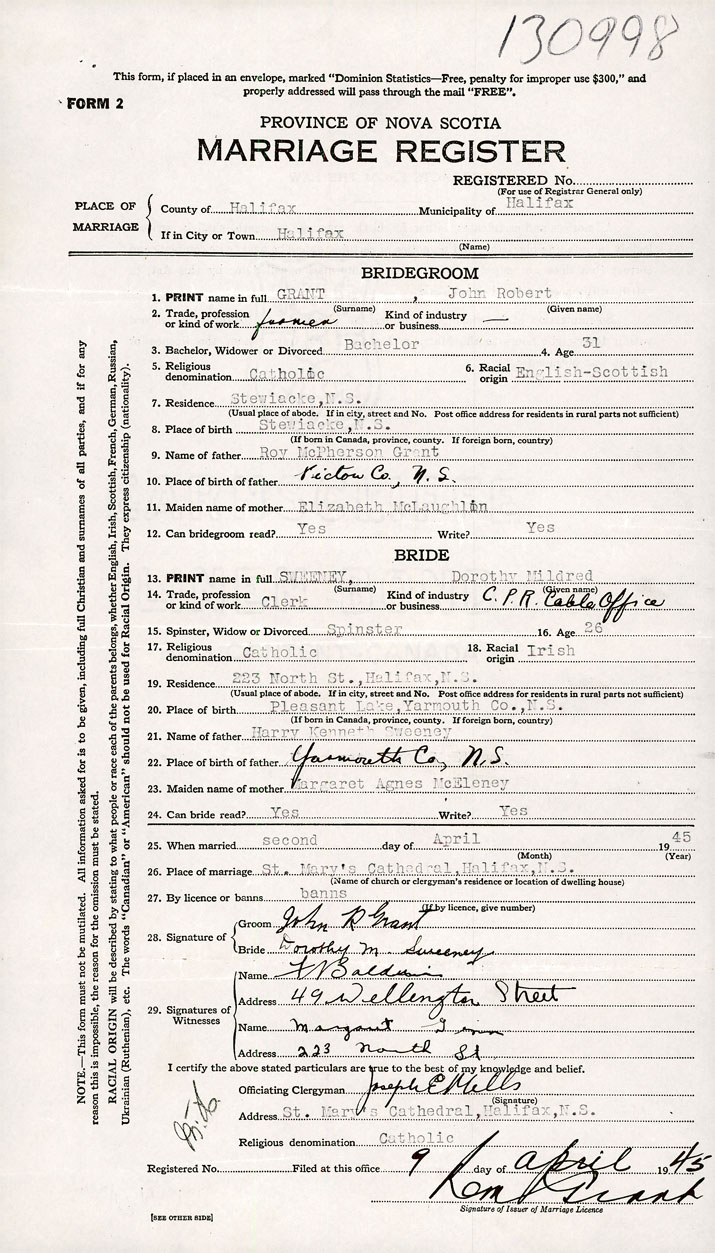 130998
This form, if placed in an envelope, marked "Dominion Statistics—Free, penalty for improper use $300," and
properly addressed will pass through the mail "FREE".
FORM 2
PROVINCE OF NOVA SCOTIA
MARRIAGE REGISTER
REGISTERED No.
(For use of Registrar General only)
PLACE OF MARRIAGE
County of Halifax Municipality of Halifax
If in City or Town Halifax
(Name)
BRIDEGROOM
1. PRINT name in full GRANT, John Robert
(Surname) (Given name)
2. Trade, profession or kind of work farmer Kind of industry or business —
3. Bachelor, Widower or Divorced Bachelor 4. Age 31
5. Religious denomination Catholic 6. Racial origin English-Scottish
7. Residence Stewiacke, N.S.
(Usual place of abode. If in city, street and No. Post office address for residents in rural parts not sufficient)
8. Place of birth Stewiacke, N.S.
(If born in Canada, province, county. If foreign born, country)
9. Name of father Roy McPherson Grant
10. Place of birth of father Pictou Co., N.S.
11. Maiden name of mother Elizabeth McLaughlin
12. Can bridegroom read? Yes Write? Yes
BRIDE
13. PRINT name in full SWEENEY, Dorothy Mildred
(Surname) (Given name)
14. Trade, profession or kind of work Clerk Kind of industry or business C.P.R. Cable Office
15. Spinster, Widow or Divorced Spinster 16. Age 26
17. Religious denomination Catholic 18. Racial origin Irish
19. Residence 223 North St., Halifax, N.S.
(Usual place of abode. If in city, street and No. Post office address for residents in rural parts not sufficient)
20. Place of birth Pleasant Lake, Yarmouth Co., N.S.
(If born in Canada, province, county. If foreign born, country)
21. Name of father Harry Kenneth Sweeney
22. Place of birth of father Yarmouth Co, N.S.
23. Maiden name of mother Margaret Agnes McEleney
24. Can bride read? Yes Write? Yes
25. When married second day of April 1945
(Month) (Year)
26. Place of marriage St. Mary's Cathedral, Halifax, N.S.
(Name of church or clergyman's residence or location of dwelling house)
27. By licence or banns banns
(If by licence, give number)
28. Signature of
Groom John R Grant
Bride Dorothy M. Sweeney
29. Signatures of Witnesses
Name Baldwin
Address 49 Wellington Street
Name Margaret
Address 223 North St
I certify the above stated particulars are true to the best of my knowledge and belief.
Officiating Clergyman Joseph E Mills
(Signature)
Address St. Mary's Cathedral, Halifax, N.S.
Religious denomination Catholic
Registered No. Filed at this office 9 day of April 1945
Signature of Issuer of Marriage Licence
[SEE OTHER SIDE]
NOTE.—This form must not be mutilated. All information asked for is to be given, including full Christian and surnames of all parties, and if for any
reason this is impossible, the reason for the omission must be stated.
RACIAL ORIGIN will be described by stating to what people or race each of the parents belongs, whether English, Irish, Scottish, French, German, Russian,
Ukrainian (Ruthenian), etc. The words "Canadian" or "American" should not be used for Racial Origin. They express citizenship (nationality).